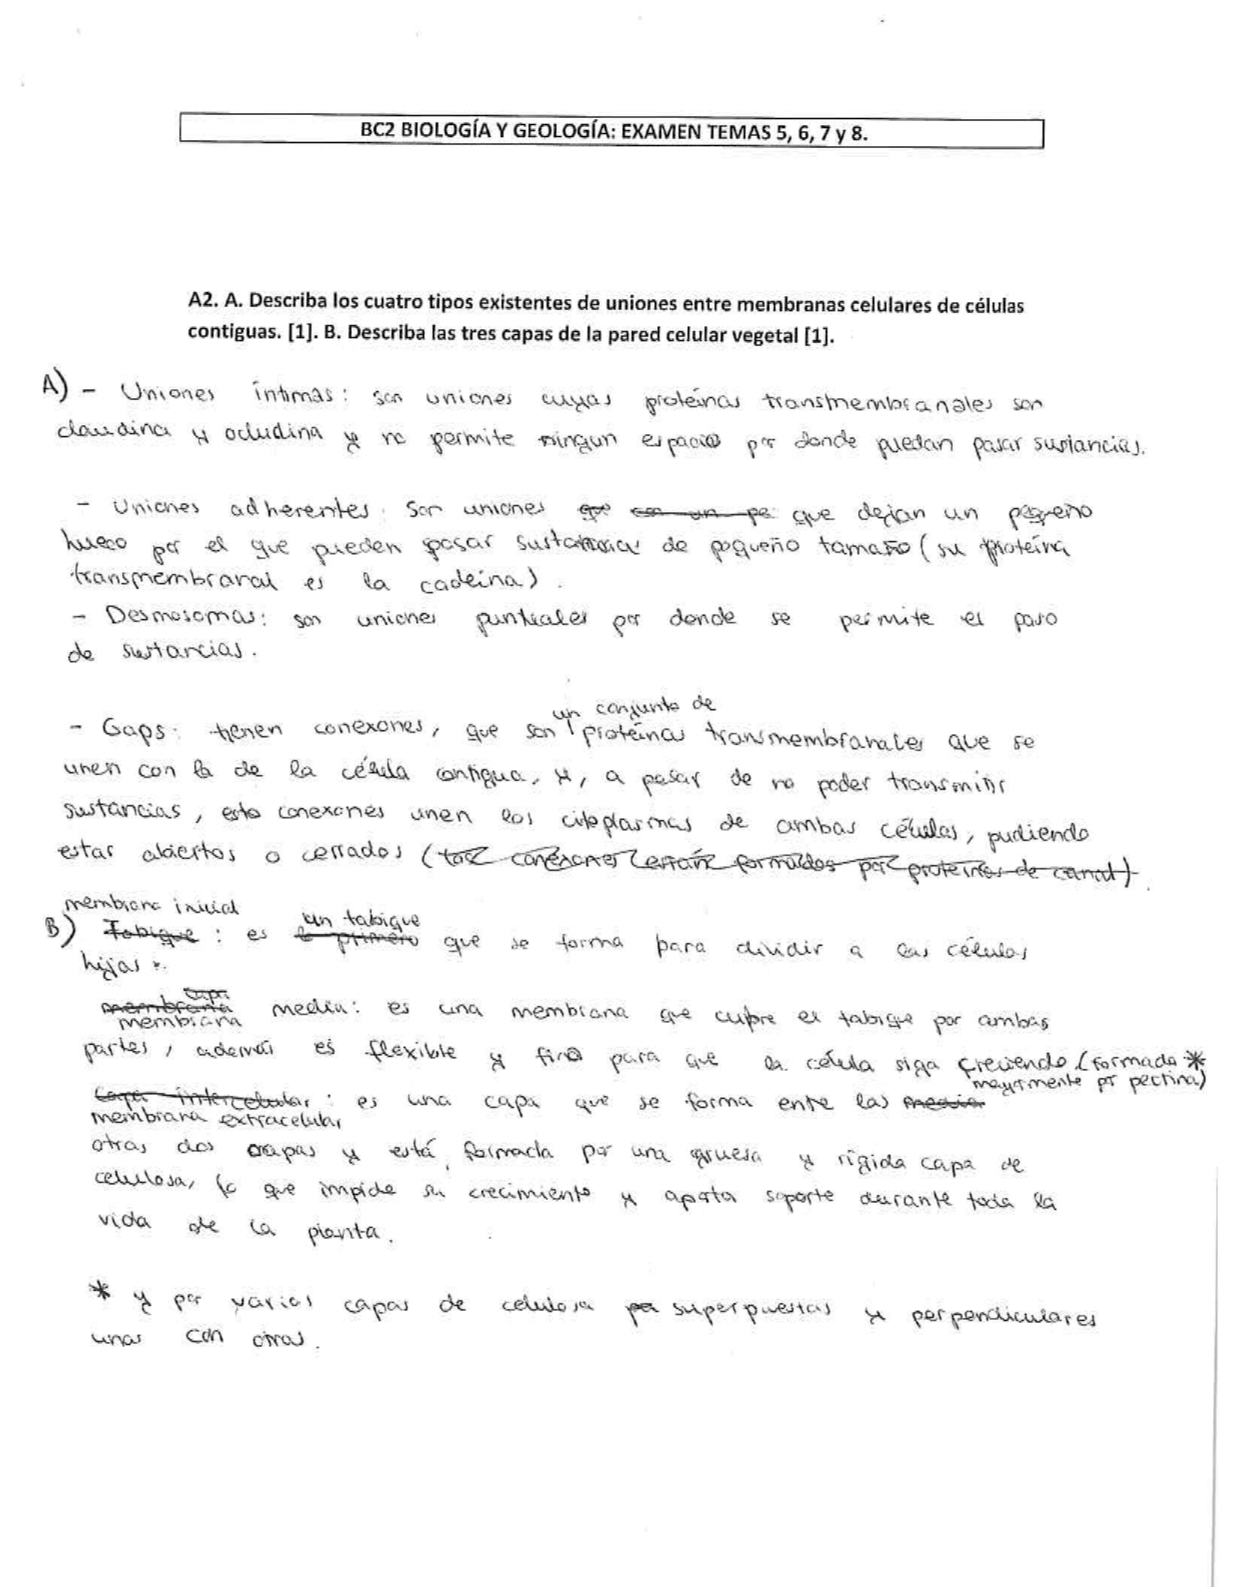 BC2 BIOLOGÍA Y GEOLOGÍA: EXAMEN TEMAS 5, 6, 7 y 8.
A2. A. Describa los cuatro tipos existentes de uniones entre membranas celulares de células
contiguas. [1]. B. Describa las tres capas de la pared celular vegetal [1].
A) - Uniones íntimas: son uniones cuyas proteínas transmembranales son
claudina y ocludina y no permite ningun espacio por donde puedan pasar sustancias.
- Uniones adherentes: Son uniones que con un pe que dejan un pequeño
hueco por el que pueden pasar sustancias de pequeño tamaño (su proteína
transmembranal es la cadeina).
- Desmosomas: son uniones puntuales por donde se permite el paso
de sustancias.
un conjunto de
- Gaps: tienen conexones, que son proteínas transmembranales que se
unen con la de la célula contigua, y, a pesar de no poder transmitir
sustancias, esto conexones unen los citoplasmas de ambas células, pudiendo
estar abiertos o cerrados (los conexones están formados por proteínas de canal).
membrana inicial un tabique
B) Tabique : es lo primero que se forma para dividir a las células
hijas.
capa
membrana media: es una membrana que cubre el tabique por ambas
membrana
partes, además es flexible y fina para que la célula siga creciendo (formada *
mayormente por pectina)
Capa intercelular : es una capa que se forma entre las media
membrana extracelular
otras dos capas y está formada por una gruesa y rígida capa de
celulosa, lo que impide su crecimiento y aporta soporte durante toda la
vida de la planta.
* y por varias capas de celulosa per superpuestas y perpendiculares
unas con otras.